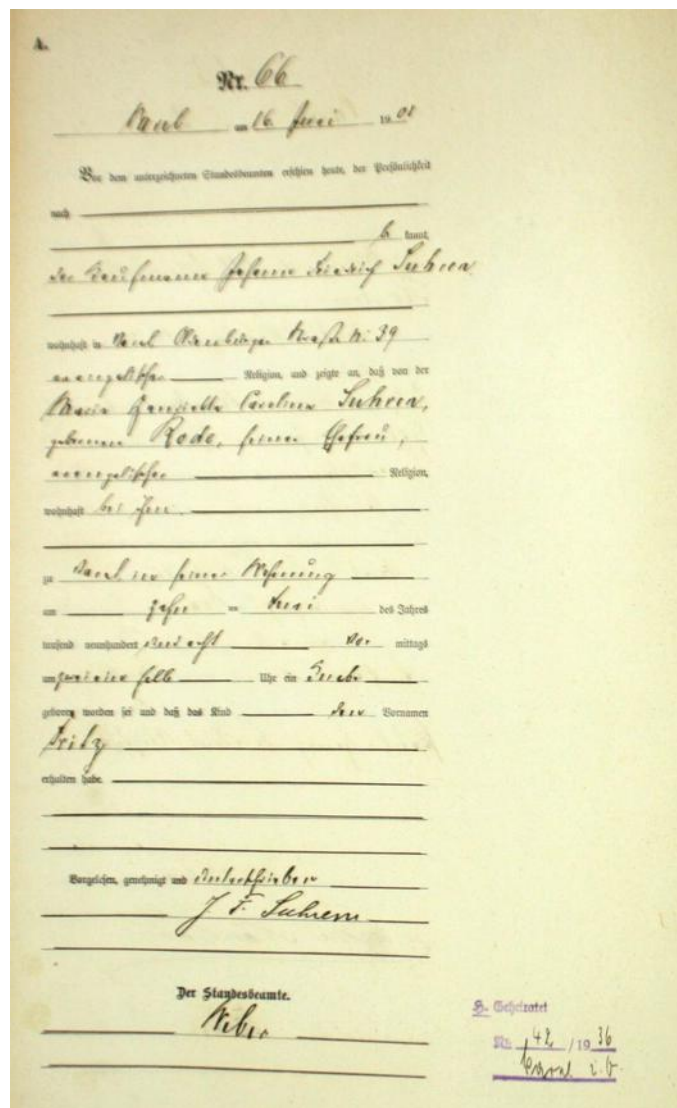 A.
Nr. 66
Varel am 16. Juni 1908
Vor dem unterzeichneten Standesbeamten erschien heute, der Persönlichkeit
nach
bekannt,
der Kaufmann Johann Friedrich Suhren
wohnhaft in Varel Oldenburger Straße Nr 39
evangelischer Religion, und zeigte an, daß von der
Maria Henriette Caroline Suhren,
geborenen Rode, seiner Ehefrau,
evangelischer Religion,
wohnhaft bei ihm
zu Varel in seiner Wohnung
am zehn ten Juni des Jahres
tausend neunhundert und acht Vor mittags
um zwei ein halb Uhr ein Knabe
geboren worden sei und daß das Kind den Vornamen
Fritz
erhalten habe.
Vorgelesen, genehmigt und unterschrieben
J F. Suhren
Der Standesbeamte.
Weber
H. Geheiratet
Nr. 42 / 1936
Varel i. O.